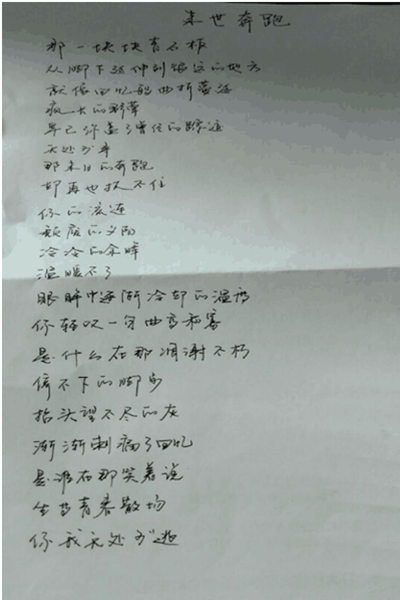 末世奔跑
那一块块青石板
从脚下延伸到很远的地方
就像回忆般曲折蔓延
疯长的野草
早已掩盖了曾经的踪迹
无处可寻
那末日的奔跑
却再也抓不住
你的流连
颓废的夕阳
冷冷的余晖
温暖不了
眼眸中逐渐冷却的温度
你轻叹一句曲高和寡
是什么在那凋谢不朽
停不下的脚步
抬头望不尽的灰
渐渐刺痛了回忆
是谁在那笑着说
生当青春散场
你我无处可逃